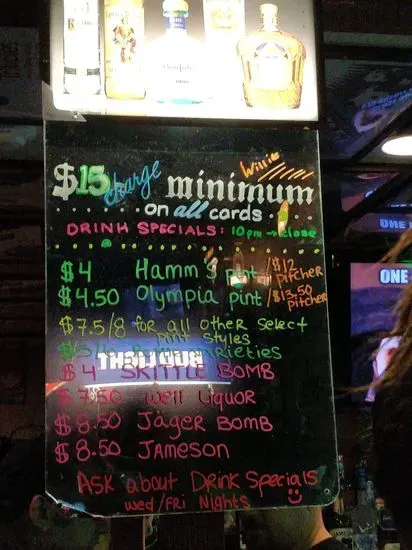 $15 charge minimum
Willie
on all cards
DRINK SPECIALS: 10pm → close
$4 Hamm's pint / $12 pitcher
$4.50 Olympia pint / $13.50 pitcher
$7.5/8 for all other select
pint styles
$4 SKITTLE BOMB
$7.50 well liquor
$8.50 Jäger BOMB
$8.50 JAMESON
ASK about Drink Specials
wed/FRI Nights
ONE